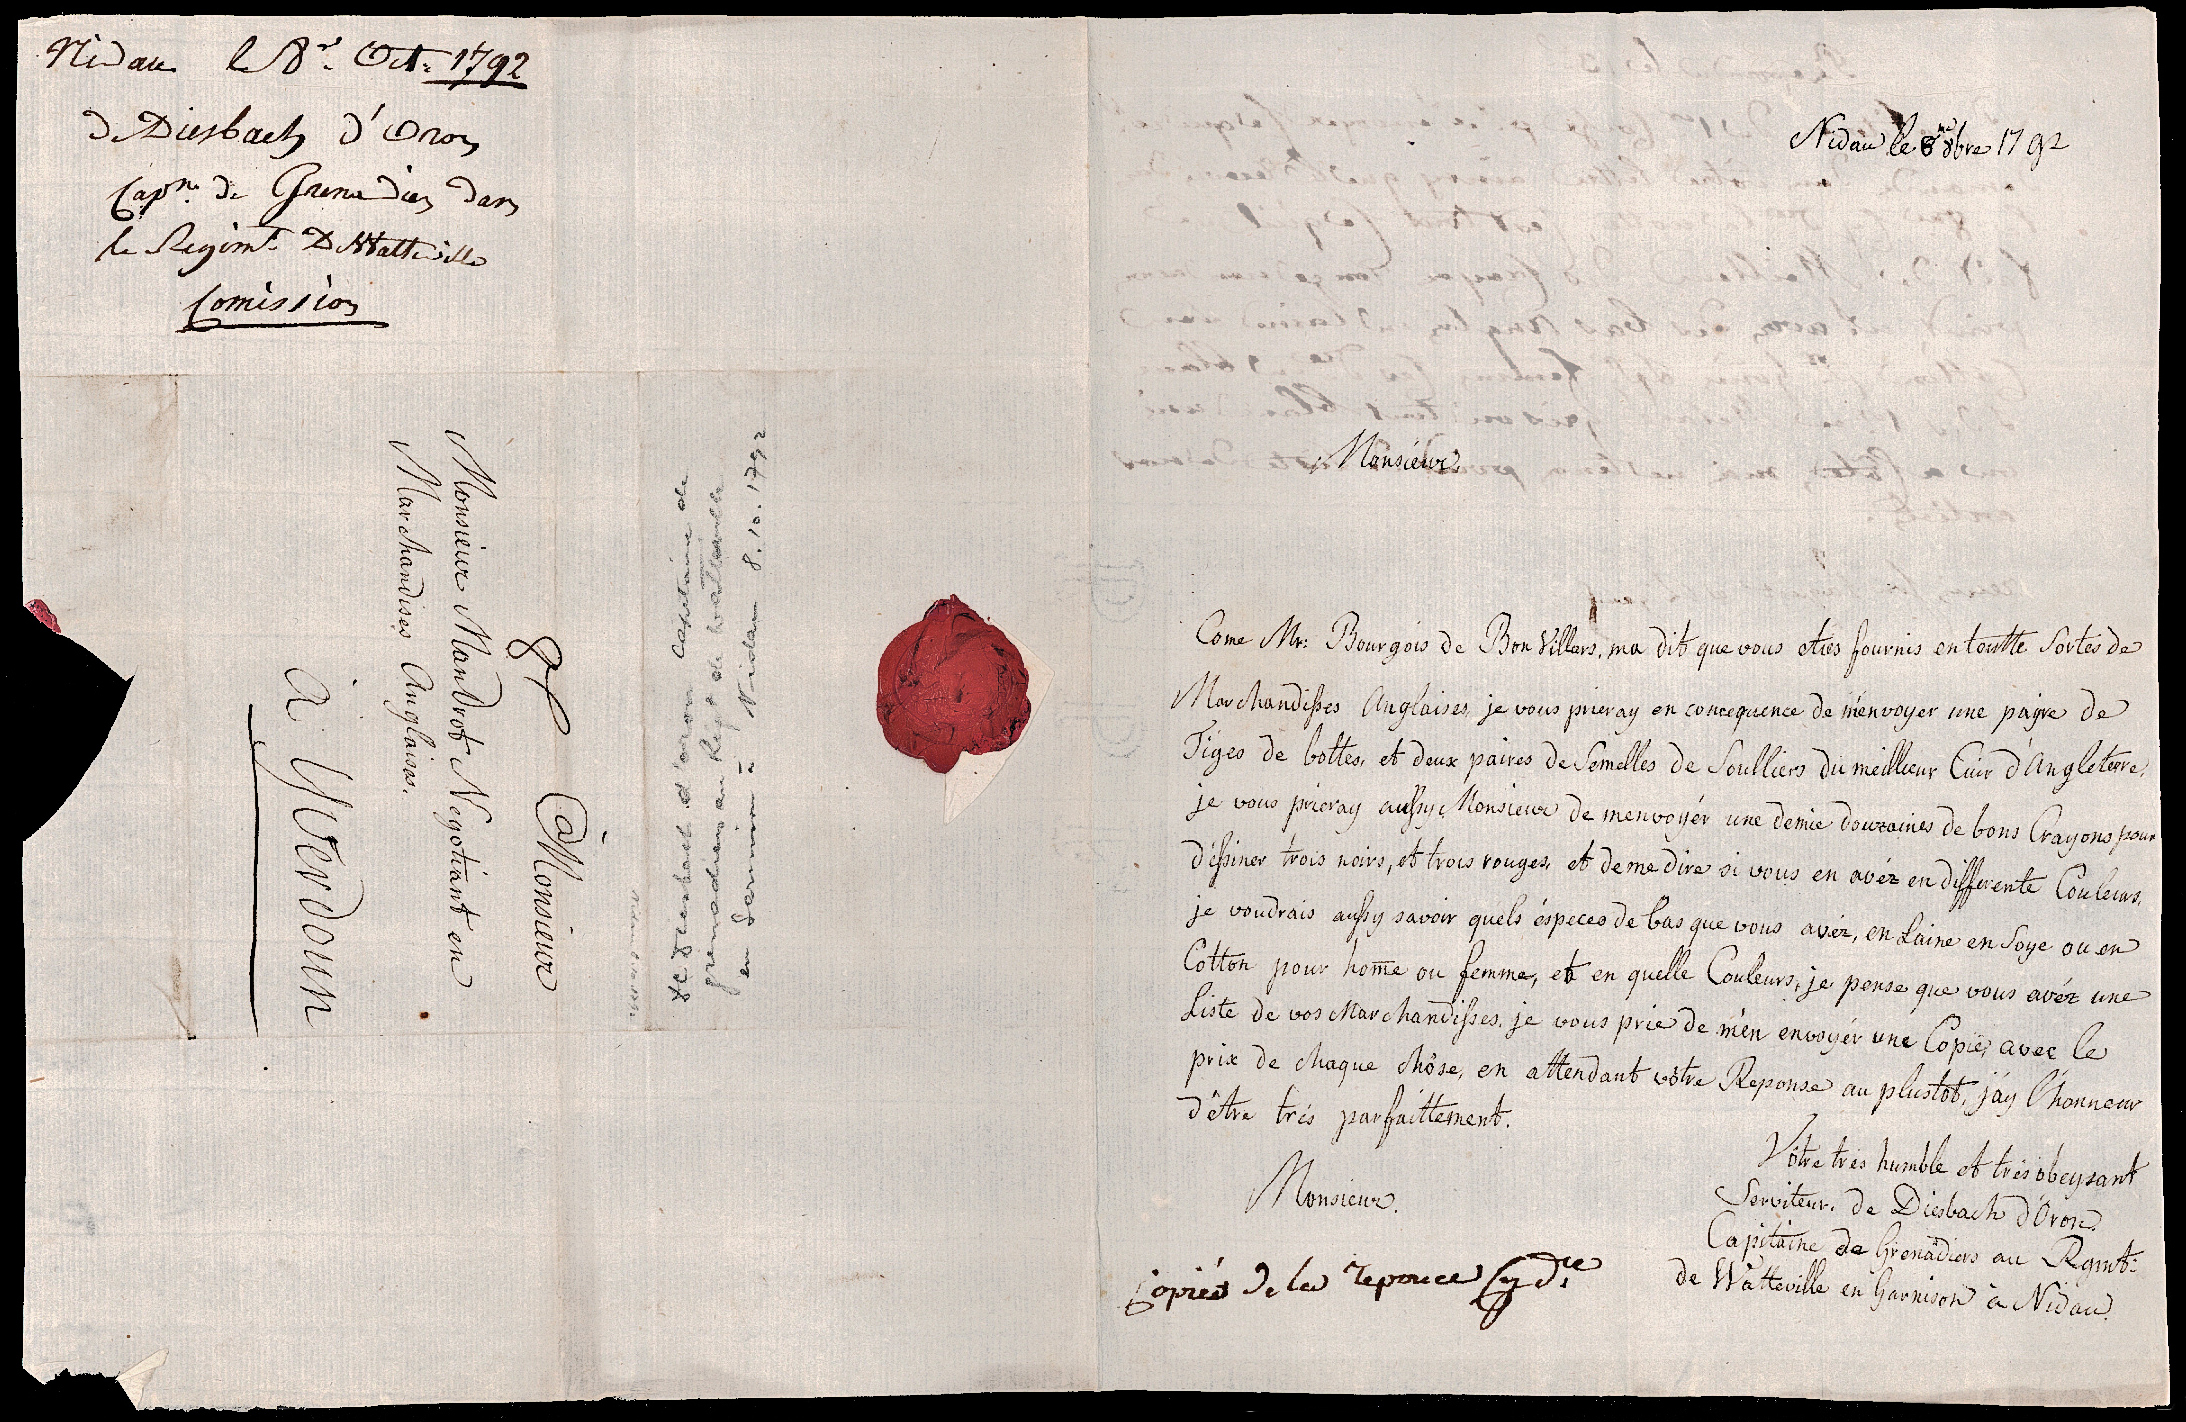 Nidau le 8.e Oct. 1792
de Diesbach d'Oron
Capne. de Grenadiers dans
le Regimt. D Watteville
Comission
à Monsieur
Monsieur Mandrot Negotiant en
Marchandises Anglaises.
à Yverdoun
de Diesbach d'oron Capitaine de
grenadiers au Regt de Watteville
en garnison à Nidau 8.10.1792
Nidau le 8me 8bre 1792
Monsieur
Come Mr: Bourgois de Bon Villars, ma dit que vous eties fournis en toutte Sortes de
Marchandisses Anglaises, je vous prieray en consequence de m'envoyer une payre de
Tiges de bottes, et deux paires de Semelles de Soulliers du meillieur Cuir d'Angleterre,
je vous prieray aussy Monsieur de menvoyér une demie douzaines de bons Crayons pour
déssiner trois noirs, et trois rouges, et de me dire si vous en avéz en differente Couleurs,
je voudrais aussy savoir quels éspeces de bas que vous avéz, en Laine en Soye ou en
Cotton pour home ou femme, et en quelle Couleurs, je pense que vous avéz une
Liste de vos Marchandisses, je vous prie de m'en envoyér une Copie, avec le
prix de chaque chôse, en attendant vôtre Reponse au plustot, j'ay l'honneur
d'être trés parfaittement.
Monsieur.
Vôtre trés humble et trés obeysant
Serviteur. de Diesbach d'Oron.
Capitaine de Grenadiers au Regmt:
de Watteville en Garnison à Nidau.
Copies de la reponce